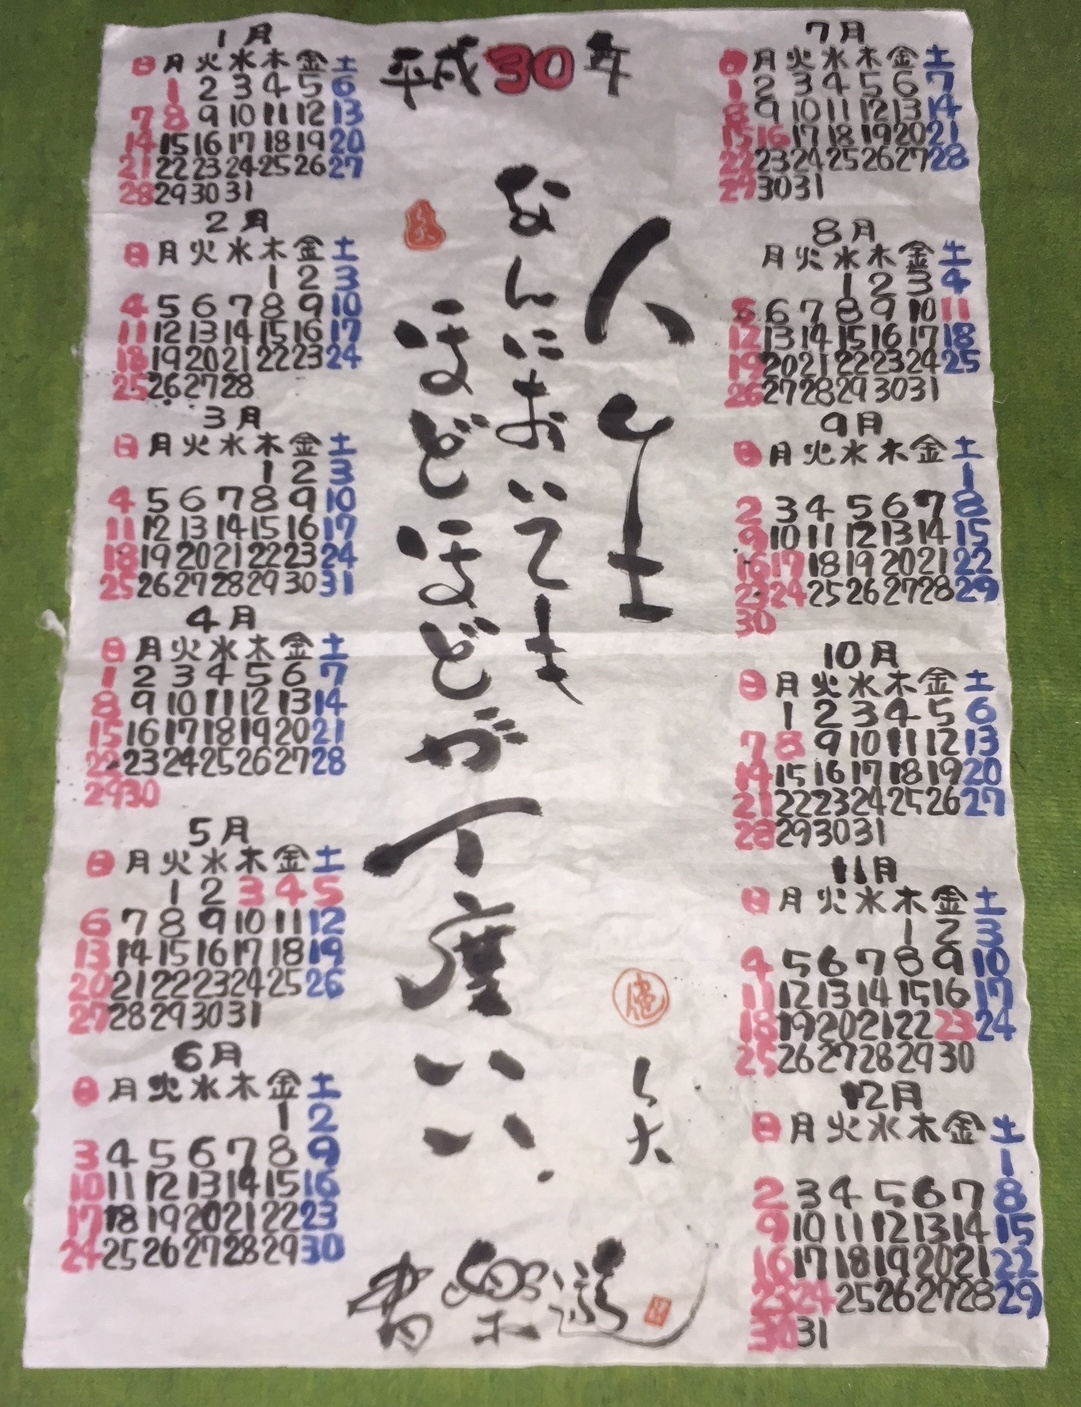 平成30年
人生
なんにおいても
ほどほどが
丁度いい.
書楽遊
1月
日月火水木金土
1 2 3 4 5 6
7 8 9 10 11 12 13
14 15 16 17 18 19 20
21 22 23 24 25 26 27
28 29 30 31
2月
日月火水木金土
1 2 3
4 5 6 7 8 9 10
11 12 13 14 15 16 17
18 19 20 21 22 23 24
25 26 27 28
3月
日月火水木金土
1 2 3
4 5 6 7 8 9 10
11 12 13 14 15 16 17
18 19 20 21 22 23 24
25 26 27 28 29 30 31
4月
日月火水木金土
1 2 3 4 5 6 7
8 9 10 11 12 13 14
15 16 17 18 19 20 21
22 23 24 25 26 27 28
29 30
5月
日月火水木金土
1 2 3 4 5
6 7 8 9 10 11 12
13 14 15 16 17 18 19
20 21 22 23 24 25 26
27 28 29 30 31
6月
日月火水木金土
1 2
3 4 5 6 7 8 9
10 11 12 13 14 15 16
17 18 19 20 21 22 23
24 25 26 27 28 29 30
7月
日月火水木金土
1 2 3 4 5 6 7
8 9 10 11 12 13 14
15 16 17 18 19 20 21
22 23 24 25 26 27 28
29 30 31
8月
月火水木金土
1 2 3 4
5 6 7 8 9 10 11
12 13 14 15 16 17 18
19 20 21 22 23 24 25
26 27 28 29 30 31
9月
日月火水木金土
1
2 3 4 5 6 7 8
9 10 11 12 13 14 15
16 17 18 19 20 21 22
23 24 25 26 27 28 29
30
10月
日月火水木金土
1 2 3 4 5 6
7 8 9 10 11 12 13
14 15 16 17 18 19 20
21 22 23 24 25 26 27
28 29 30 31
11月
日月火水木金土
1 2 3
4 5 6 7 8 9 10
11 12 13 14 15 16 17
18 19 20 21 22 23 24
25 26 27 28 29 30
12月
日月火水木金土
1
2 3 4 5 6 7 8
9 10 11 12 13 14 15
16 17 18 19 20 21 22
23 24 25 26 27 28 29
30 31